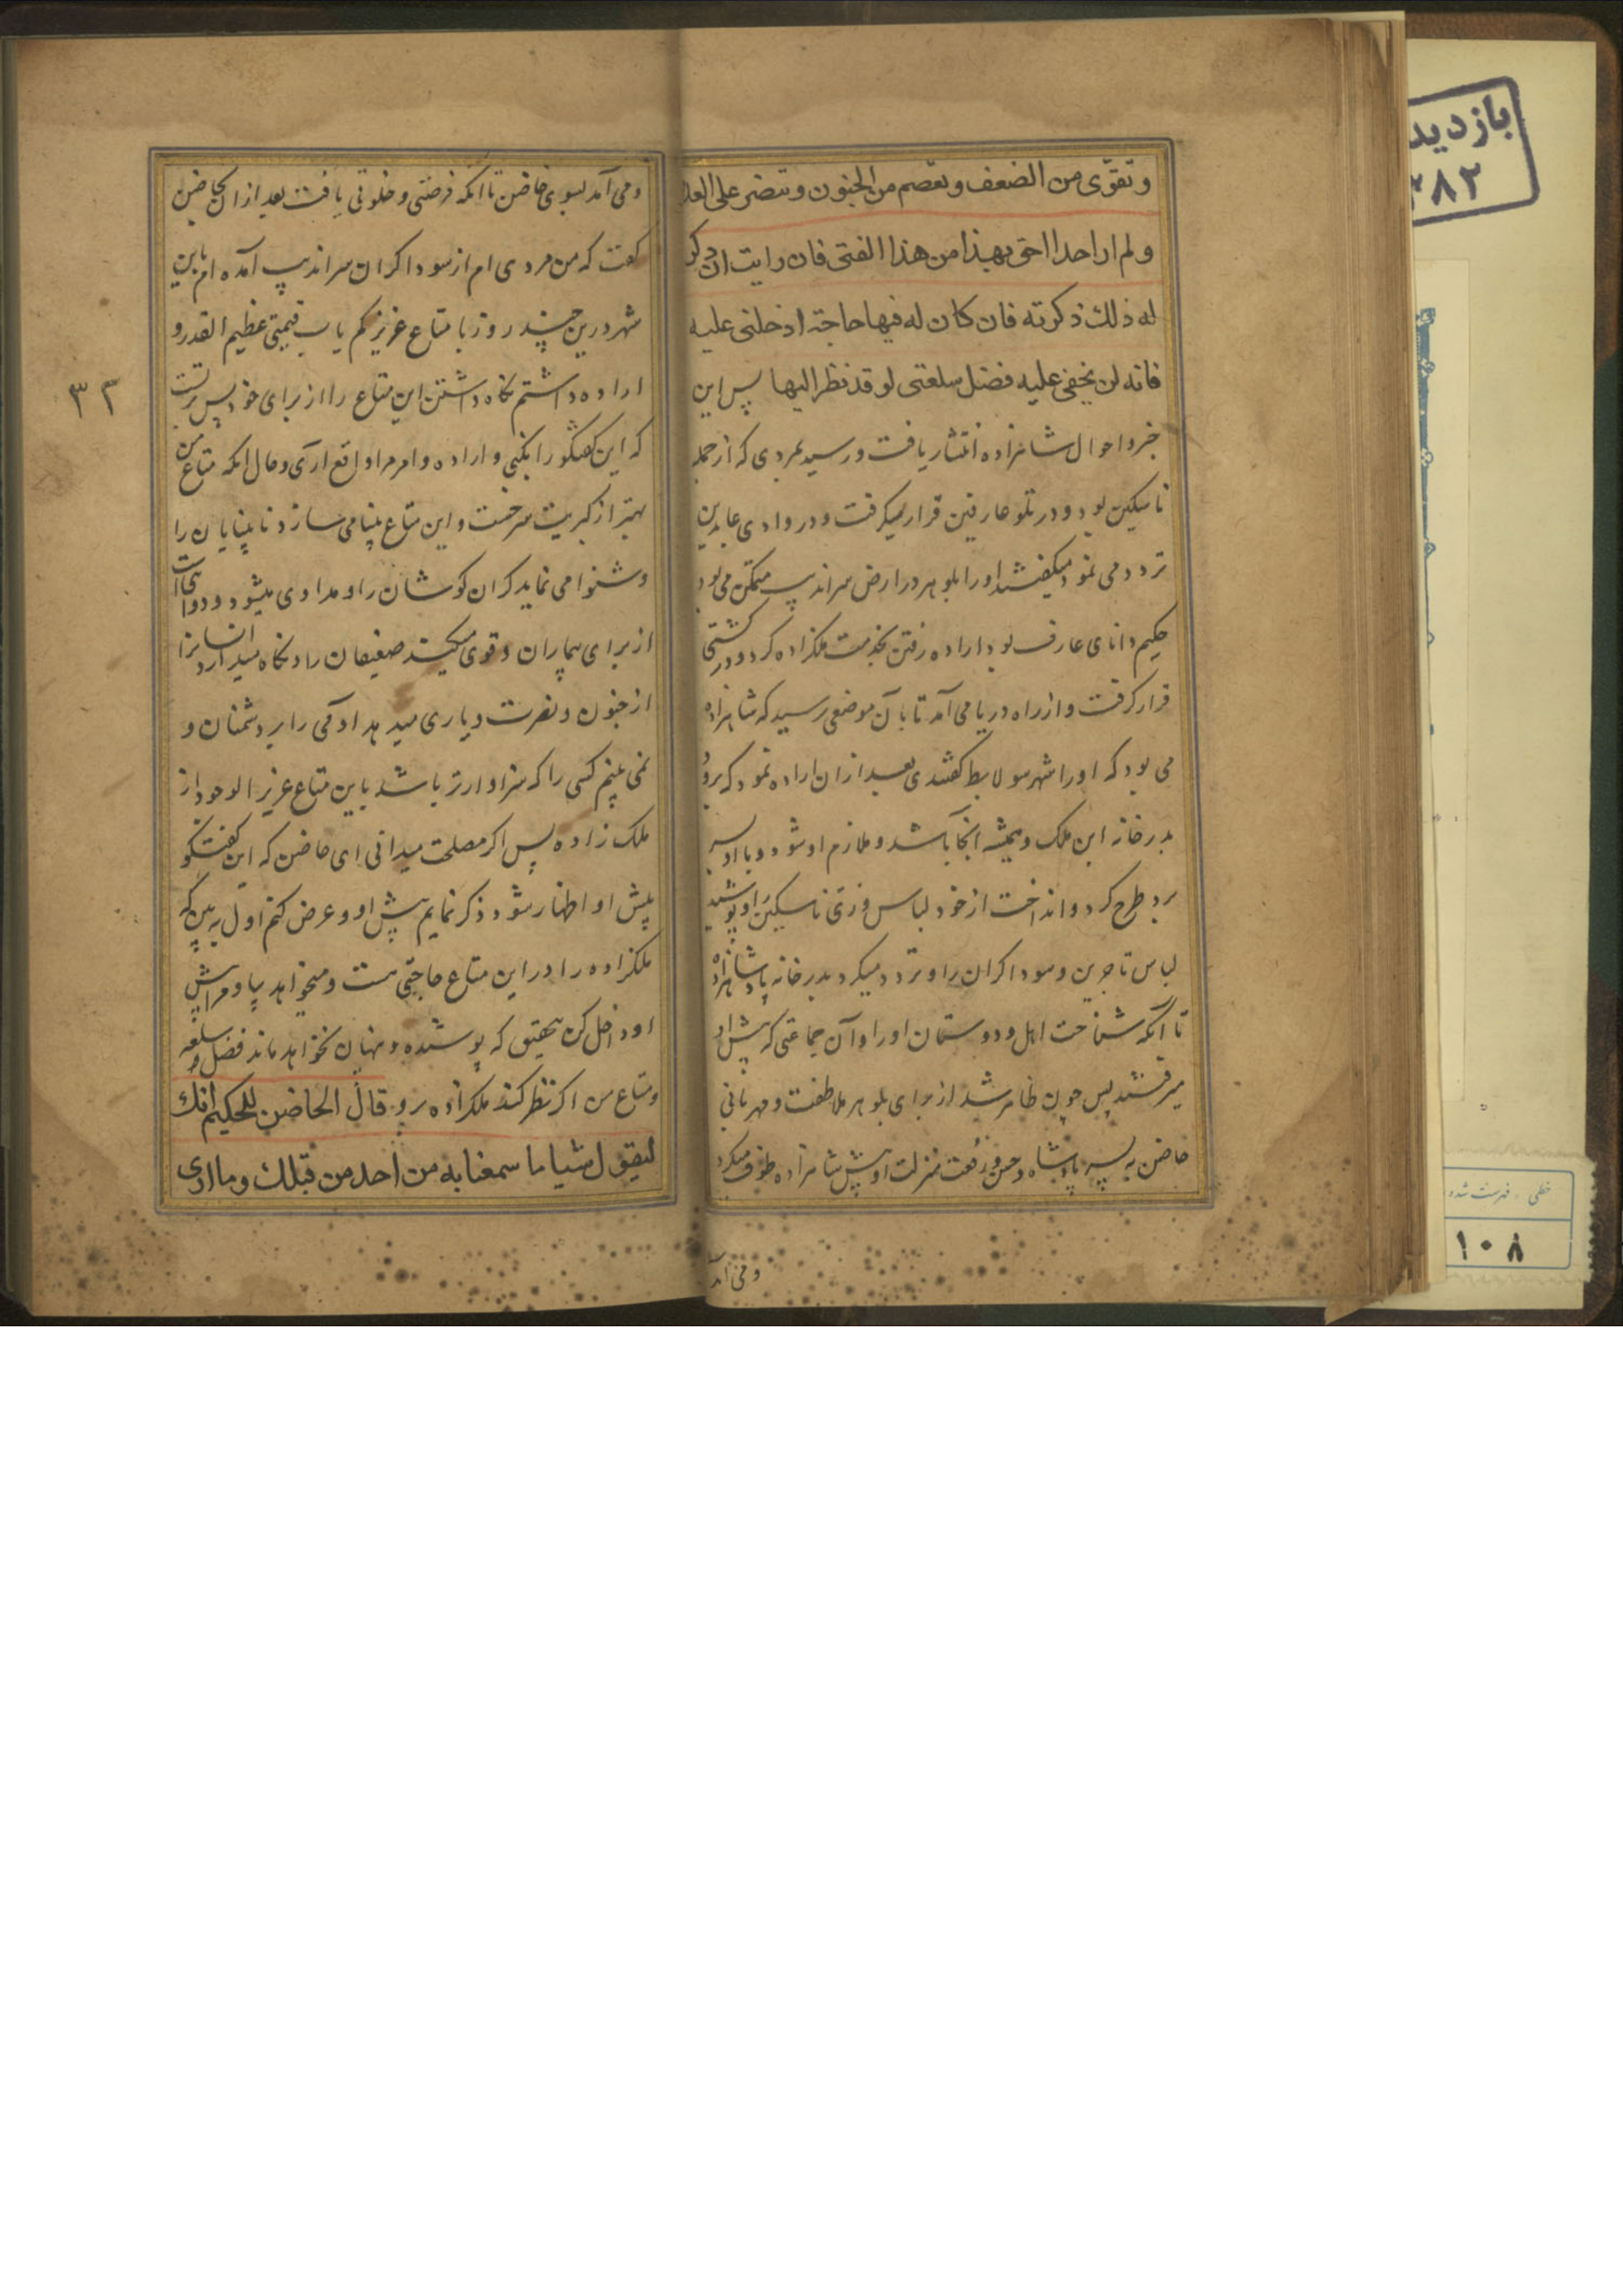 وتقوّى من الضعف وتعصم من الجنون وتنصر على العد
ولم ار احدا احق بهذا من هذا الفتى فان رايت ان تذكر
له ذلك ذكرته فان كان له فيها حاجة ادخلنى عليه
فانه لن يخفى عليه فضل سلعتى لو قد نظر اليها پس این
خبر و احوال شاهزاده انتشار یافت و رسید بمردی که از جمله
ناسکین بود و در تلو عارفین قرار میگرفت و در وادی عابدین
تردد می نمود میگفتند او را بلوهر در ارض سراندیب متمکن می بود
حکیم دانای عارف بود اراده رفتن بخدمت ملکزاده کرد و در کشتی
قرار گرفت و از راه دریا می آمد تا بآن موضعی رسید که شاهزاده
می بود که او را شهر سولابط گفتندی بعد از ان اراده نمود که برود
بدرخانه ابن ملک و همیشه آنجا باشد و ملازم او شود و با او بسر
برد طرح کرد و انداخت از خود لباس و زی ناسکین را و پوشید
لباس تاجرین و سوداکران را و تردد میکرد بدرخانه پادشاهزاده
تا آنکه شناخت اهل و دوستان او را و آن جماعتی که پیش او
میرفتند پس چون ظاهر شد از برای بلوهر ملاطفت و مهربانی
حاضن به پسر پادشاه و حسن و رفعت منزلت او پیش شاهزاده طوف میکرد
و می آمد
و می آمد بسوی حاضن تا انکه فرصتی و خلوتی یافت بعد از ان بحاضن
کفت که من مردی ام از سوداکران سراندیب آمده ام باین
شهر درین چند روز با متاع عزیز کم یاب قیمتی عظیم القدر و
اراده داشتم نکاه داشتن این متاع را از برای خود پس
که این کفتکو را بکنی و اراده و امر مرا واقع آری و حال انکه متاع من
بهتر از کبریت سرخست و این متاع بینا می سازد نابینایان را
و شنوا می نماید کران کوشان را و مداوی میشود و دوا است
از برای بیماران و قوی میکند ضعیفان را و نکاه میدارد انسانرا
از جنون و نصرت و یاری میدهد آدمی را بر دشمنان و
نمی بینم کسی را که سزاوارتر باشد باین متاع عزیز الوجود از
ملک زاده پس اکر مصلحت میدانی ای حاضن که این کفتکو
پیش او اظهار شود ذکر نمایم پیش او و عرض کنم اول به بین که
ملکزاده را در این متاع حاجتی هست و میخواهد بیا و مرا پیش
او داخل کن بتحقیق که پوشیده و پنهان نخواهد ماند فضل سلعه
و متاع من اکر نظر کند ملکزاده برو قال الحاضن للحكيم انك
لتقول شيئا ما سمعنا به من احد من قبلك وما ارى
۳۳
بازدید
۳۸۲
خطی . فهرست شده
۱۰۸